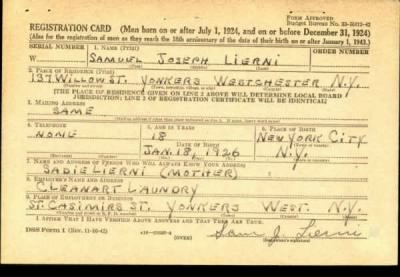 Form Approved
REGISTRATION CARD (Men born on or after July 1, 1924, and on or before December 31, 1924)
(Also for the registration of men as they reach the 18th anniversary of the date of their birth on or after January 1, 1943.)
SERIAL NUMBER 1. NAME (Print)
W SAMUEL JOSEPH LIERNI
2. PLACE OF RESIDENCE (Print)
137 WILLOW ST. YONKERS WESTCHESTER N.Y.
[THE PLACE OF RESIDENCE GIVEN ON LINE 2 ABOVE WILL DETERMINE LOCAL BOARD
JURISDICTION; LINE 2 OF REGISTRATION CERTIFICATE WILL BE IDENTICAL]
3. MAILING ADDRESS
SAME
4. TELEPHONE 5. AGE IN YEARS 6. PLACE OF BIRTH
NONE 18 NEW YORK CITY
DATE OF BIRTH
JAN. 18, 1926 N.Y.
7. NAME AND ADDRESS OF PERSON WHO WILL ALWAYS KNOW YOUR ADDRESS
SADIE LIERNI (MOTHER)
8. EMPLOYER'S NAME AND ADDRESS
CLEANART LAUNDRY
9. PLACE OF EMPLOYMENT OR BUSINESS
ST. CASIMIRS ST. YONKERS WEST. N.Y.
I AFFIRM THAT I HAVE VERIFIED ABOVE ANSWERS AND THAT THEY ARE TRUE.
DSS Form 1 (Rev. 11-16-42) (OVER) Sam J. Lierni